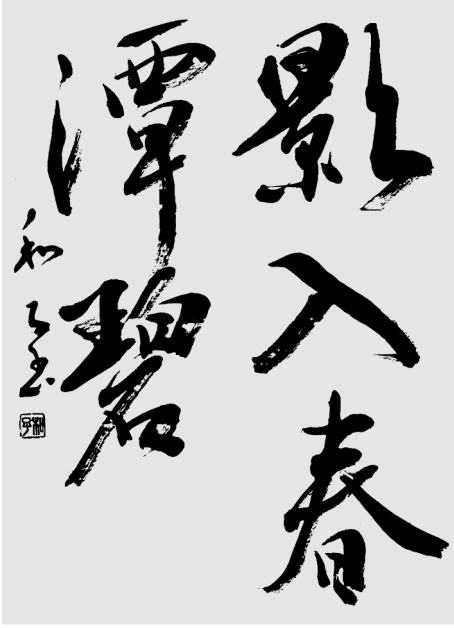 影入春
潭碧
和子书